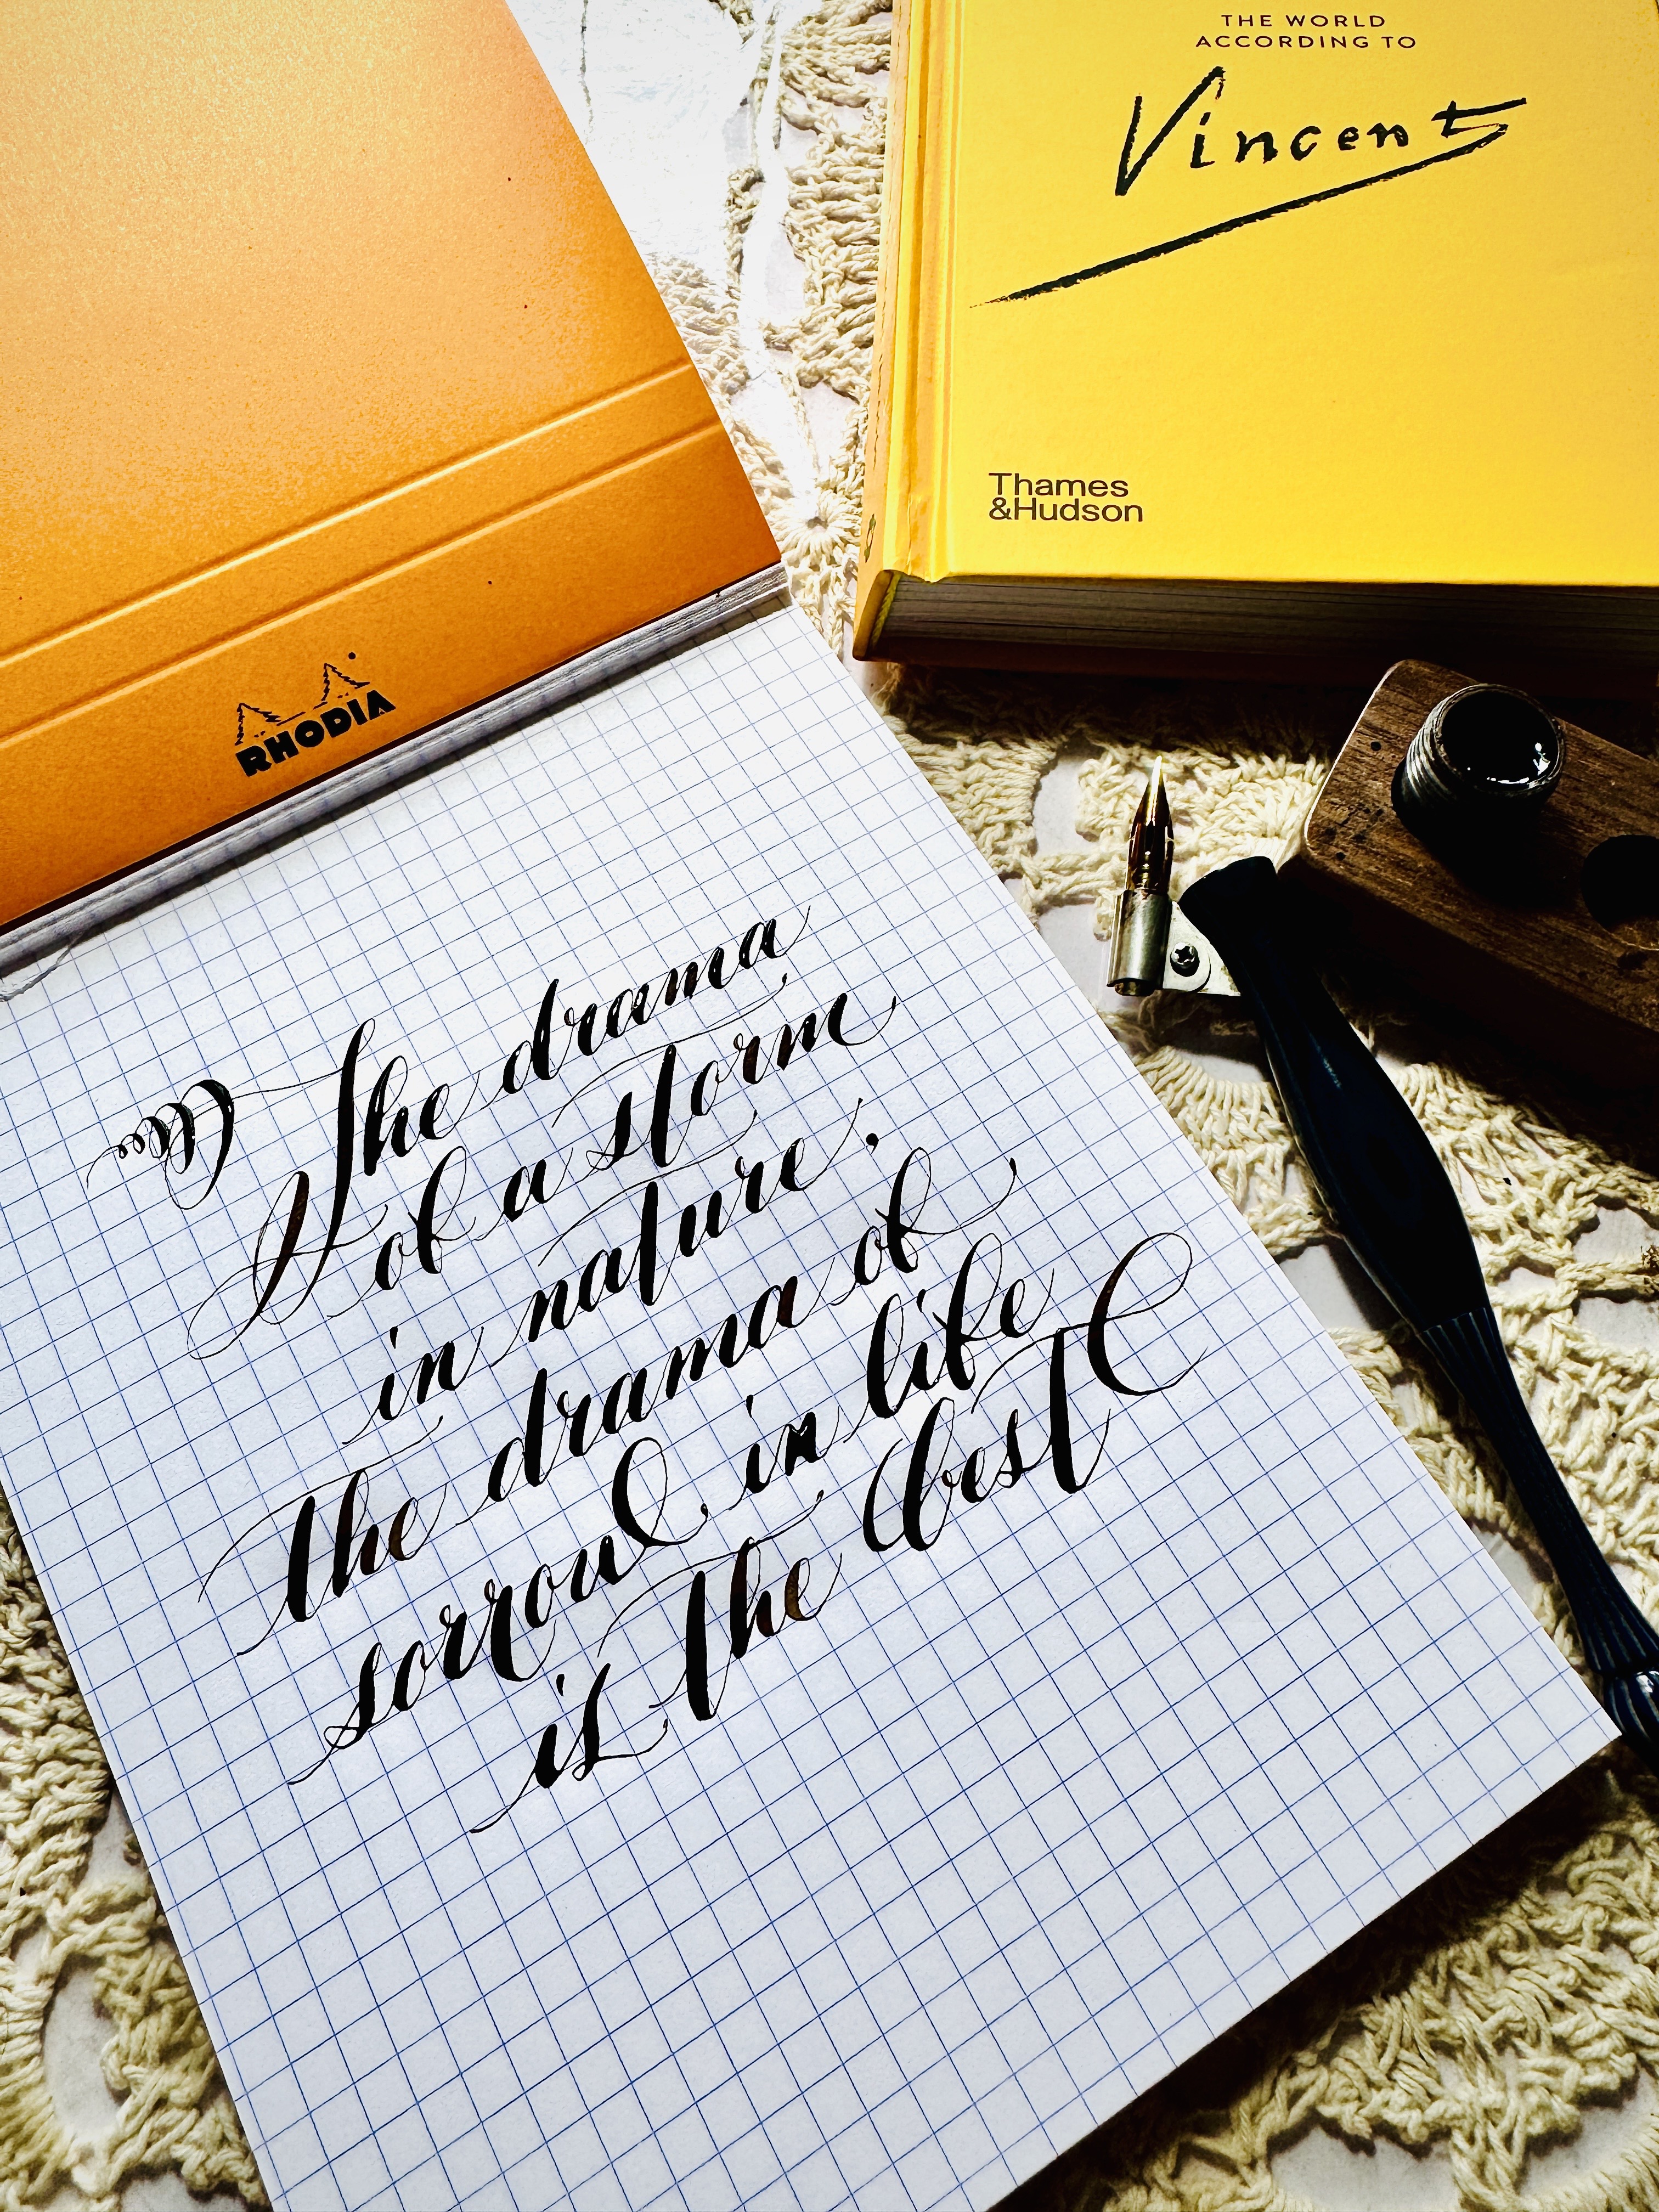 THE WORLD
ACCORDING TO
Vincent
Thames
&Hudson
RHODIA
The drama
of a storm
in nature,
the drama of
sorrow in life
is the best